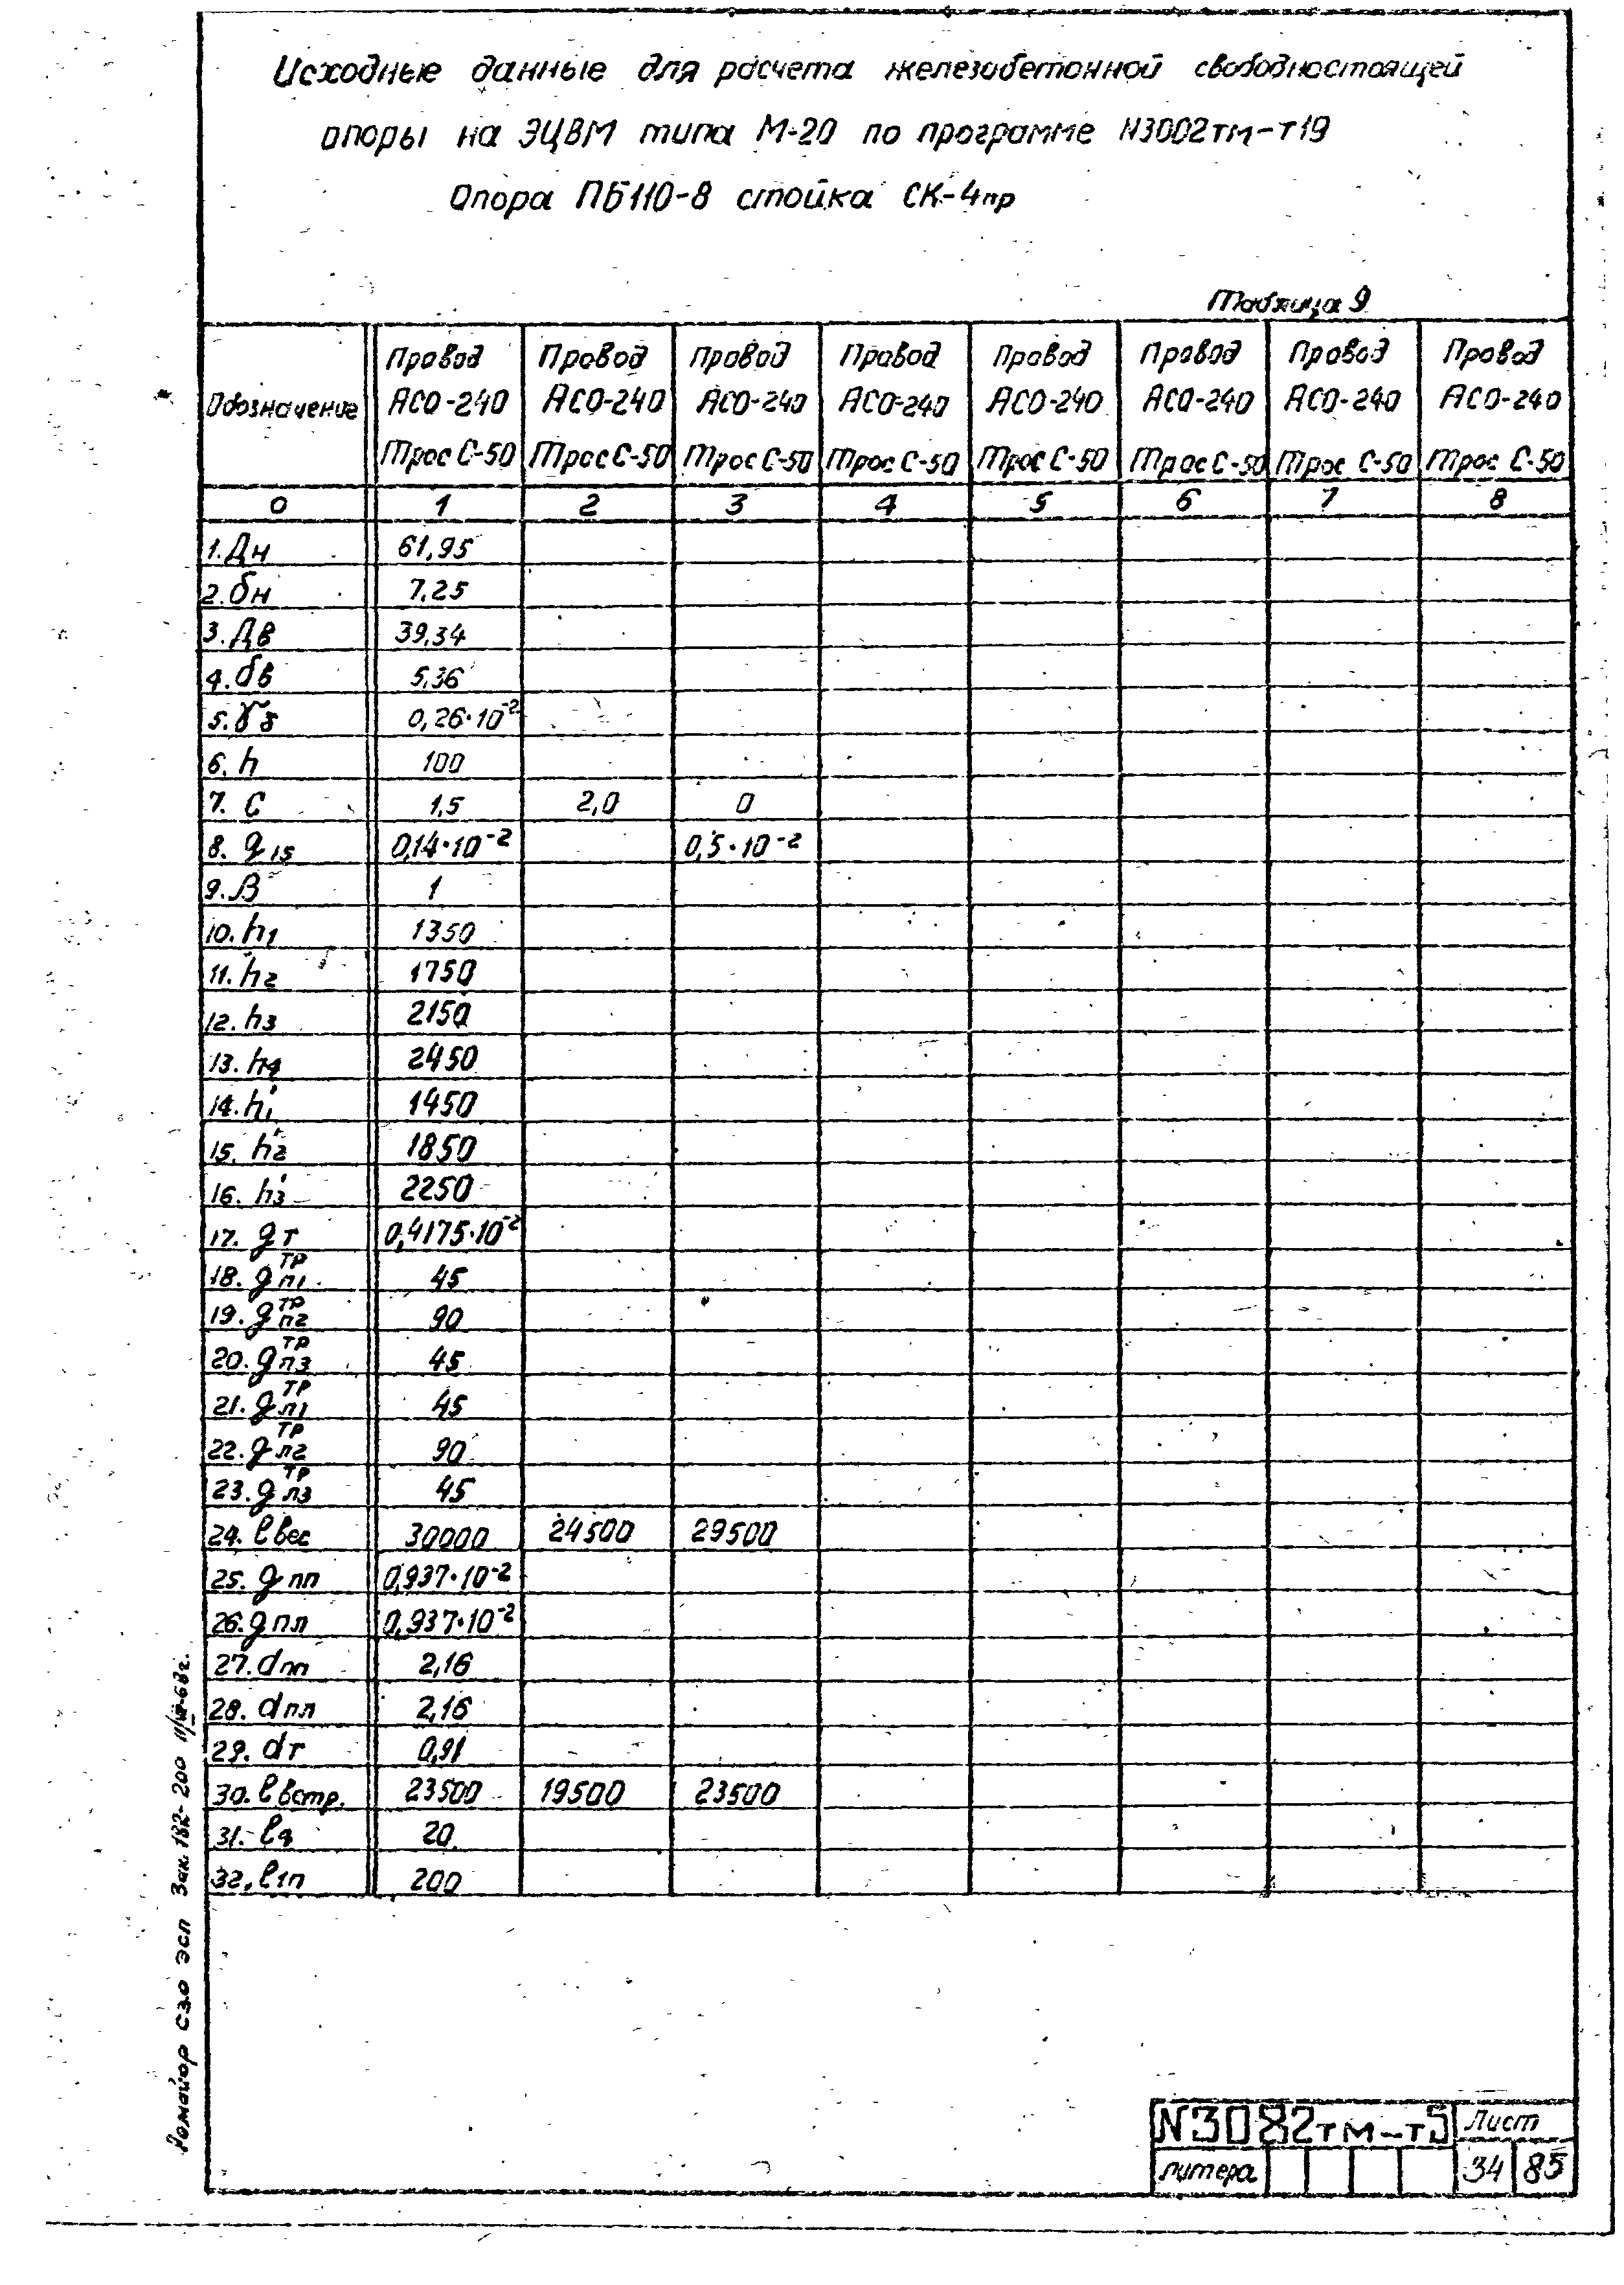 Исходные данные для расчета железобетонной свободностоящей
опоры на ЭЦВМ типа М-20 по программе N3002тм-т19
Опора ПБ110-8 стойка СК-4пр
Таблица 9
Обозначение
Провод АСО-240 Трос С-50
Провод АСО-240 Трос С-50
Провод АСО-240 Трос С-50
Провод АСО-240 Трос С-50
Провод АСО-240 Трос С-50
Провод АСО-240 Трос С-50
Провод АСО-240 Трос С-50
Провод АСО-240 Трос С-50
0 1 2 3 4 5 6 7 8
1. Дн 61,95
2. δн 7,25
3. Дв 39,34
4. δв 5,36
5. γδ 0,26·10⁻²
6. h 100
7. С 1,5 2,0 0
8. q15 0,14·10⁻² 0,5·10⁻²
9. β 1
10. h1 1350
11. h2 1750
12. h3 2150
13. h4 2450
14. h1' 1450
15. h2' 1850
16. h3' 2250
17. gт 0,4175·10⁻²
18. gп1 ТР 45
19. gп2 ТР 90
20. gп3 ТР 45
21. gл1 ТР 45
22. gл2 ТР 90
23. gл3 ТР 45
24. ℓвес 30000 24500 29500
25. gпп 0,937·10⁻²
26. gпл 0,937·10⁻²
27. dпп 2,16
28. dпл 2,16
29. dт 0,91
30. ℓветр. 23500 19500 23500
31. ℓ4 20
32. ℓ1п 200
СЗО ЭСП Зак. 182-200
N3082тм-т5 Лист
литера 34 85